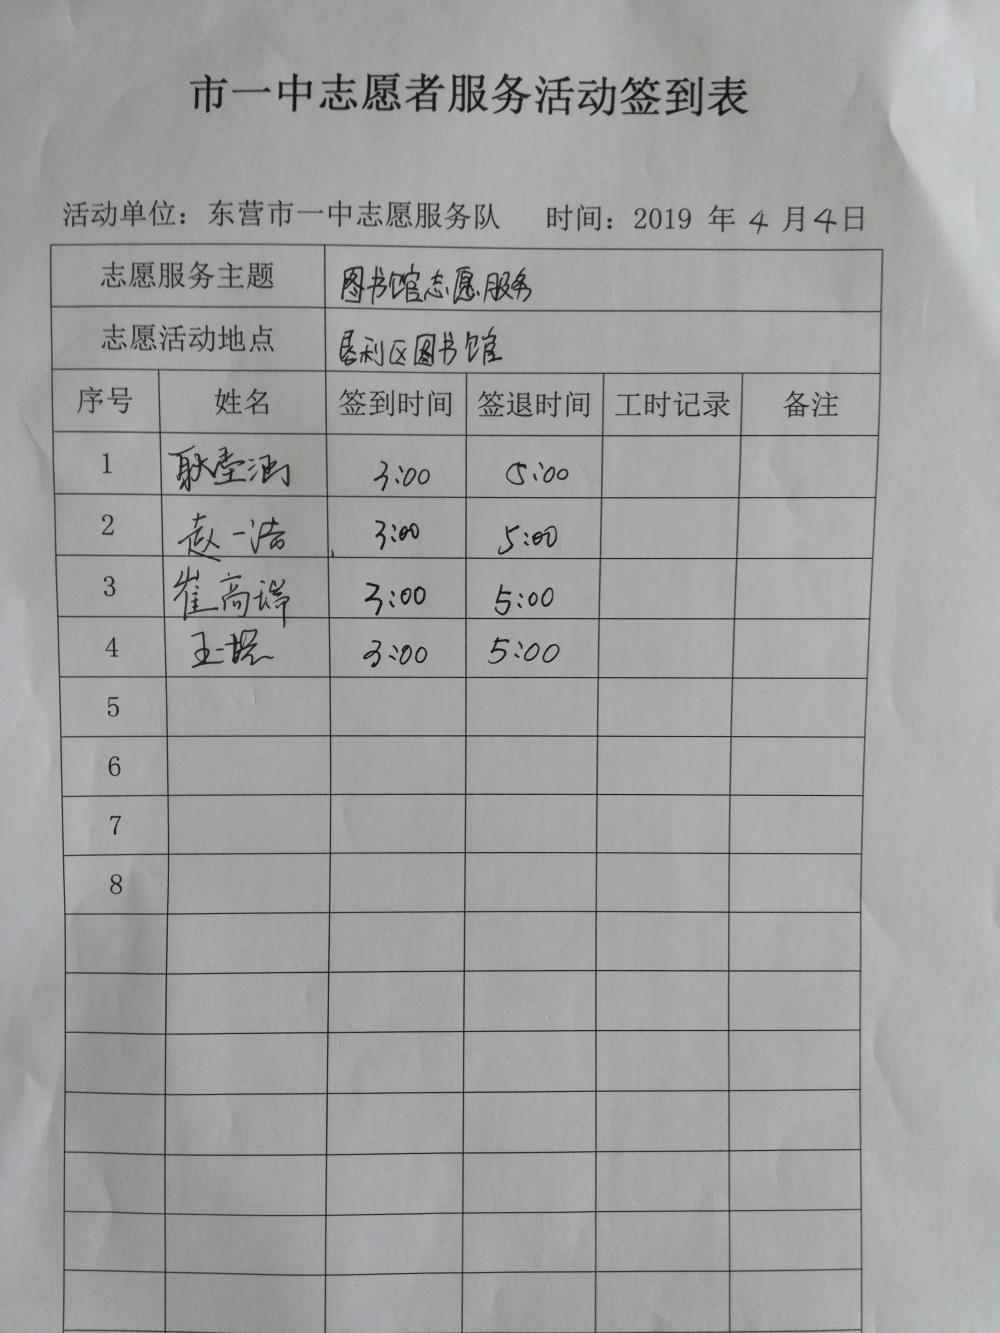 市一中志愿者服务活动签到表
活动单位：东营市一中志愿服务队 时间：2019 年 4 月 4 日
志愿服务主题 图书馆志愿服务
志愿活动地点 垦利区图书馆
序号 姓名 签到时间 签退时间 工时记录 备注
1 3:00 5:00
2 赵一浩 3:00 5:00
3 崔高瑞 3:00 5:00
4 3:00 5:00
5
6
7
8